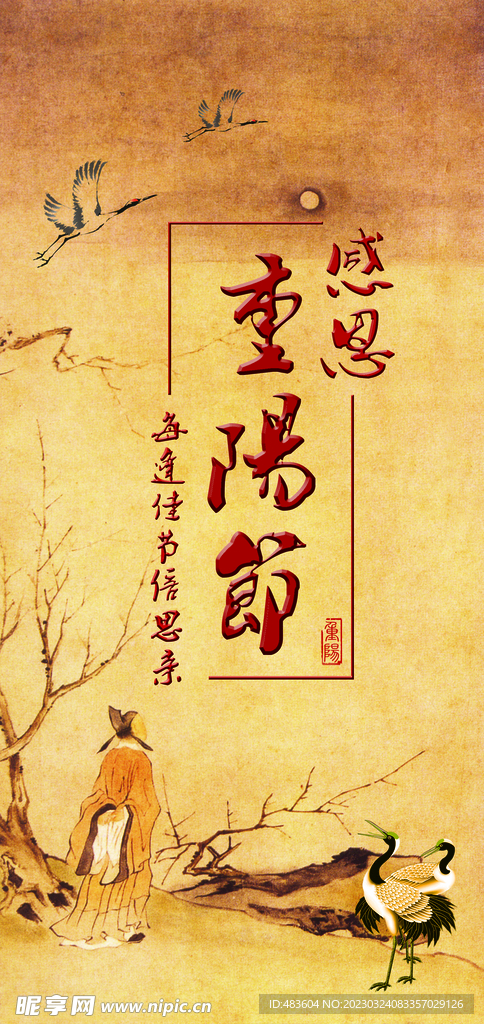 感恩
重陽節
每逢佳节倍思亲
重陽
昵享网 www.nipic.cn
ID:483604 NO:20230324083357029126